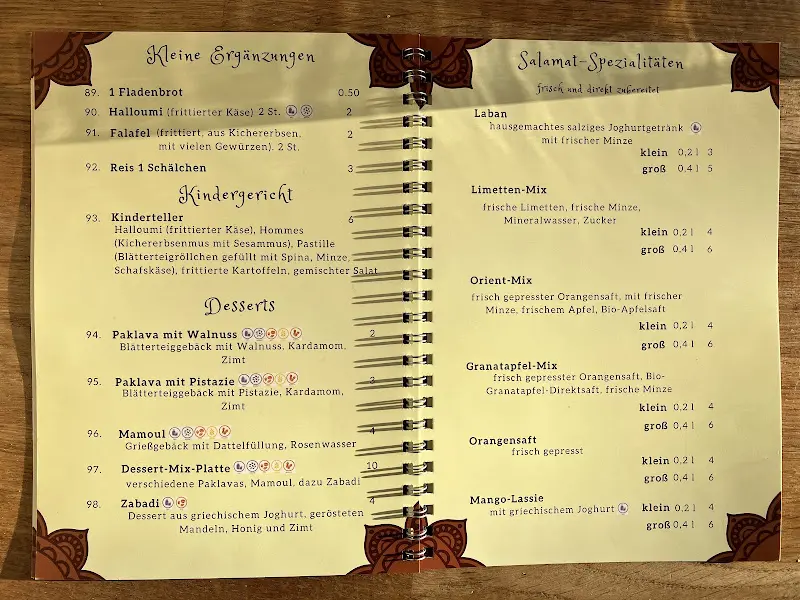 Kleine Ergänzungen
89. 1 Fladenbrot 0.50
90. Halloumi (frittierter Käse) 2 St. 2
91. Falafel (frittiert, aus Kichererbsen, 2
mit vielen Gewürzen). 2 St.
92. Reis 1 Schälchen 3
Kindergericht
93. Kinderteller 6
Halloumi (frittierter Käse), Hommes
(Kichererbsenmus mit Sesammus), Pastille
(Blätterteigröllchen gefüllt mit Spina, Minze,
Schafskäse), frittierte Kartoffeln, gemischter Salat
Desserts
94. Paklava mit Walnuss 2
Blätterteiggebäck mit Walnuss, Kardamom,
Zimt
95. Paklava mit Pistazie 3
Blätterteiggebäck mit Pistazie, Kardamom,
Zimt
96. Mamoul 4
Grießgebäck mit Dattelfüllung, Rosenwasser
97. Dessert-Mix-Platte 10
verschiedene Paklavas, Mamoul, dazu Zabadi
98. Zabadi 4
Dessert aus griechischem Joghurt, gerösteten
Mandeln, Honig und Zimt
Salamat-Spezialitäten
frisch und direkt zubereitet
Laban
hausgemachtes salziges Joghurtgetränk
mit frischer Minze
klein 0,2 l 3
groß 0,4 l 5
Limetten-Mix
frische Limetten, frische Minze,
Mineralwasser, Zucker
klein 0,2 l 4
groß 0,4 l 6
Orient-Mix
frisch gepresster Orangensaft, mit frischer
Minze, frischem Apfel, Bio-Apfelsaft
klein 0,2 l 4
groß 0,4 l 6
Granatapfel-Mix
frisch gepresster Orangensaft, Bio-
Granatapfel-Direktsaft, frische Minze
klein 0,2 l 4
groß 0,4 l 6
Orangensaft
frisch gepresst
klein 0,2 l 4
groß 0,4 l 6
Mango-Lassie
mit griechischem Joghurt klein 0,2 l 4
groß 0,4 l 6